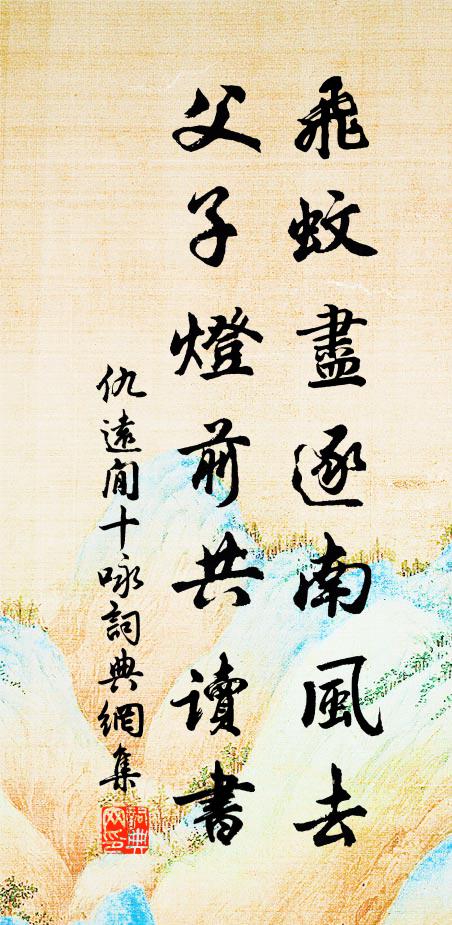 飛蚊盡逐南風去
父子燈前共讀書
仇遠閒十咏詞典網集